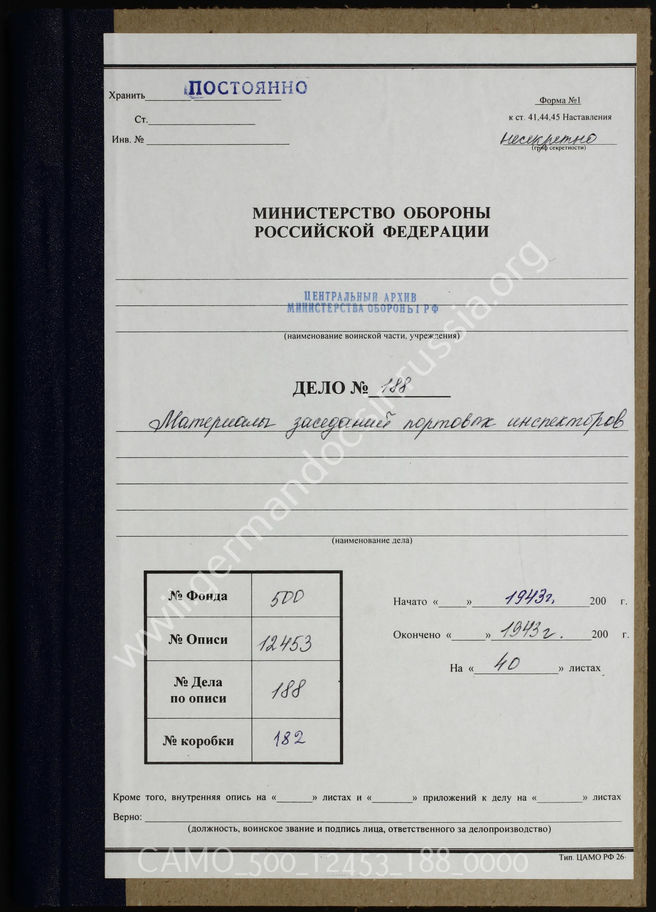 Хранить ПОСТОЯННО
Форма №1
Ст.
к ст. 41,44,45 Наставления
Инв. №
несекретно
(гриф секретности)
МИНИСТЕРСТВО ОБОРОНЫ
РОССИЙСКОЙ ФЕДЕРАЦИИ
ЦЕНТРАЛЬНЫЙ АРХИВ
МИНИСТЕРСТВА ОБОРОНЫ РФ
(наименование воинской части, учреждения)
ДЕЛО № 188
Материалы заседаний портовых инспекторов
(наименование дела)
№ Фонда 500
№ Описи 12453
№ Дела
по описи 188
№ коробки 182
Начато « » 1943г. 200 г.
Окончено « » 1943г. 200 г.
На « 40 » листах
Кроме того, внутренняя опись на « » листах и « » приложений к делу на « » листах
Верно:
(должность, воинское звание и подпись лица, ответственного за делопроизводство)
Тип. ЦАМО РФ 26-
CAMO_500_12453_188_0000
www.germandocsinrussia.org